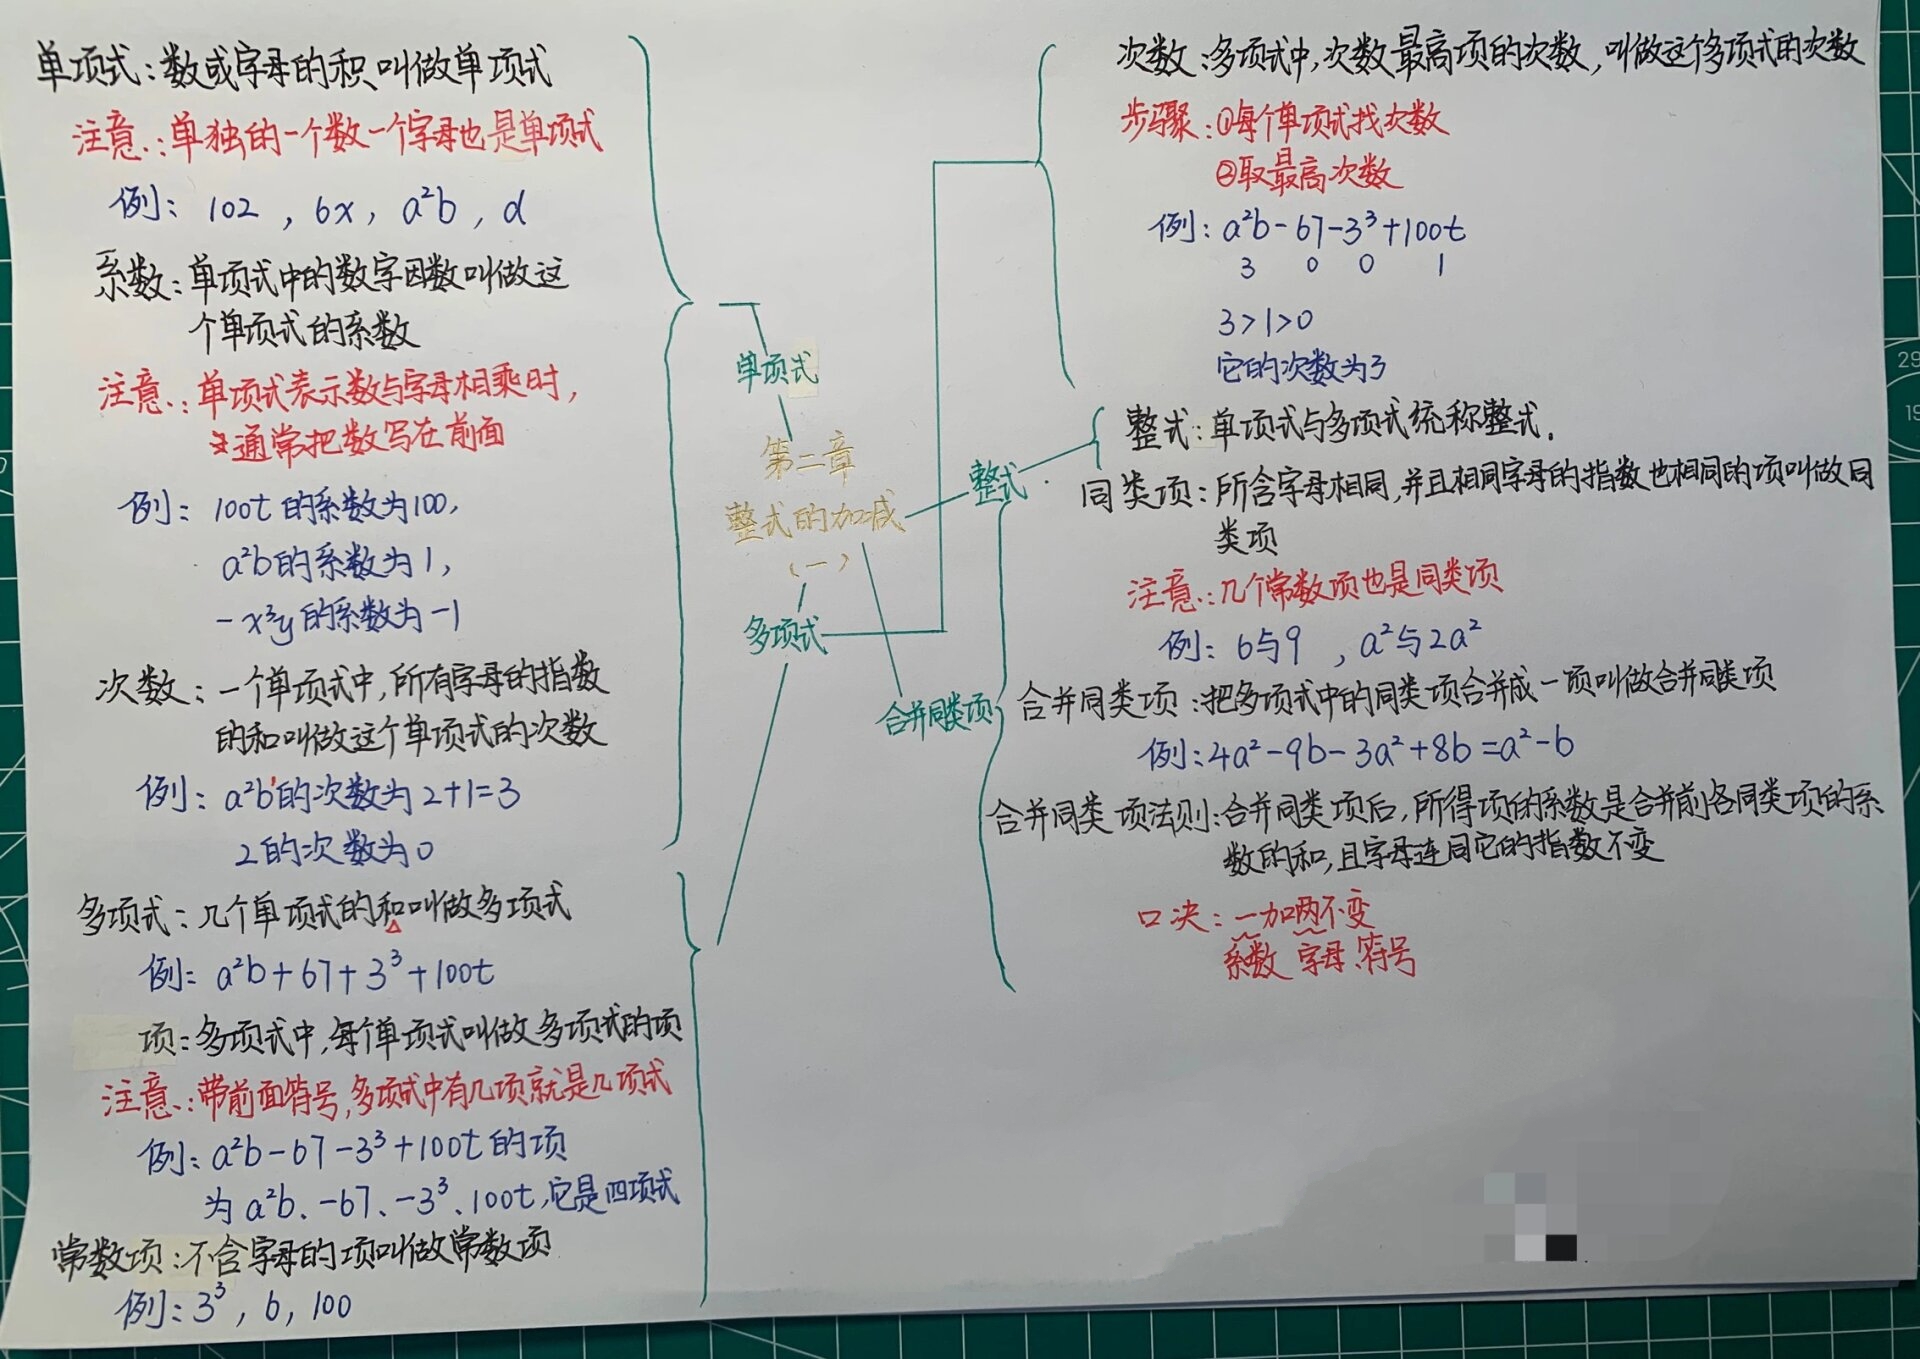 单项式：数或字母的积叫做单项式
注意：单独的一个数一个字母也是单项式
例：102，6x，a²b，d
系数：单项式中的数字因数叫做这
个单项式的系数
注意：单项式表示数与字母相乘时，
通常把数写在前面
例：100t的系数为100，
a²b的系数为1，
-x³y的系数为-1
次数：一个单项式中，所有字母的指数
的和叫做这个单项式的次数
例：a²b¹的次数为2+1=3
2的次数为0
多项式：几个单项式的和叫做多项式
例：a²b+67+3³+100t
项：多项式中，每个单项式叫做多项式的项
注意：带前面符号，多项式中有几项就是几项式
例：a²b-67-3³+100t的项
为a²b、-67、-3³、100t，它是四项式
常数项：不含字母的项叫做常数项
例：3³，6，100
单项式
第二章
整式的加减
（一）
多项式
整式
合并同类项
次数：多项式中，次数最高项的次数，叫做这个多项式的次数
步骤：①每个单项式找次数
②取最高次数
例：a²b-67-3³+100t
3 0 0 1
3>1>0
它的次数为3
整式：单项式与多项式统称整式.
同类项：所含字母相同，并且相同字母的指数也相同的项叫做同
类项
注意：几个常数项也是同类项
例：6与9，a²与2a²
合并同类项：把多项式中的同类项合并成一项叫做合并同类项
例：4a²-9b-3a²+8b=a²-b
合并同类项法则：合并同类项后，所得项的系数是合并前各同类项的系
数的和，且字母连同它的指数不变
口决：一加两不变
系数 字母、符号
29
19